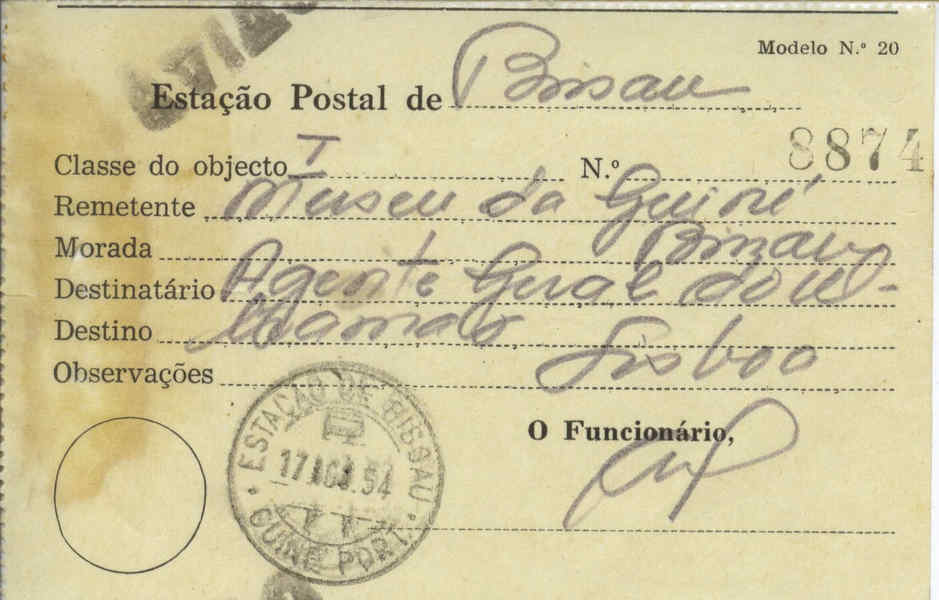 AVIÃO
Modelo N.º 20
Estação Postal de Bissau
Classe do objecto I N.º 8874
Remetente Museu da Guiné
Morada Bissau
Destinatário Agente Geral do U-
Destino ltramar Lisboa
Observações
O Funcionário,
ESTAÇÃO DE BISSAU
17 AGO. 54
GUINÉ PORT.